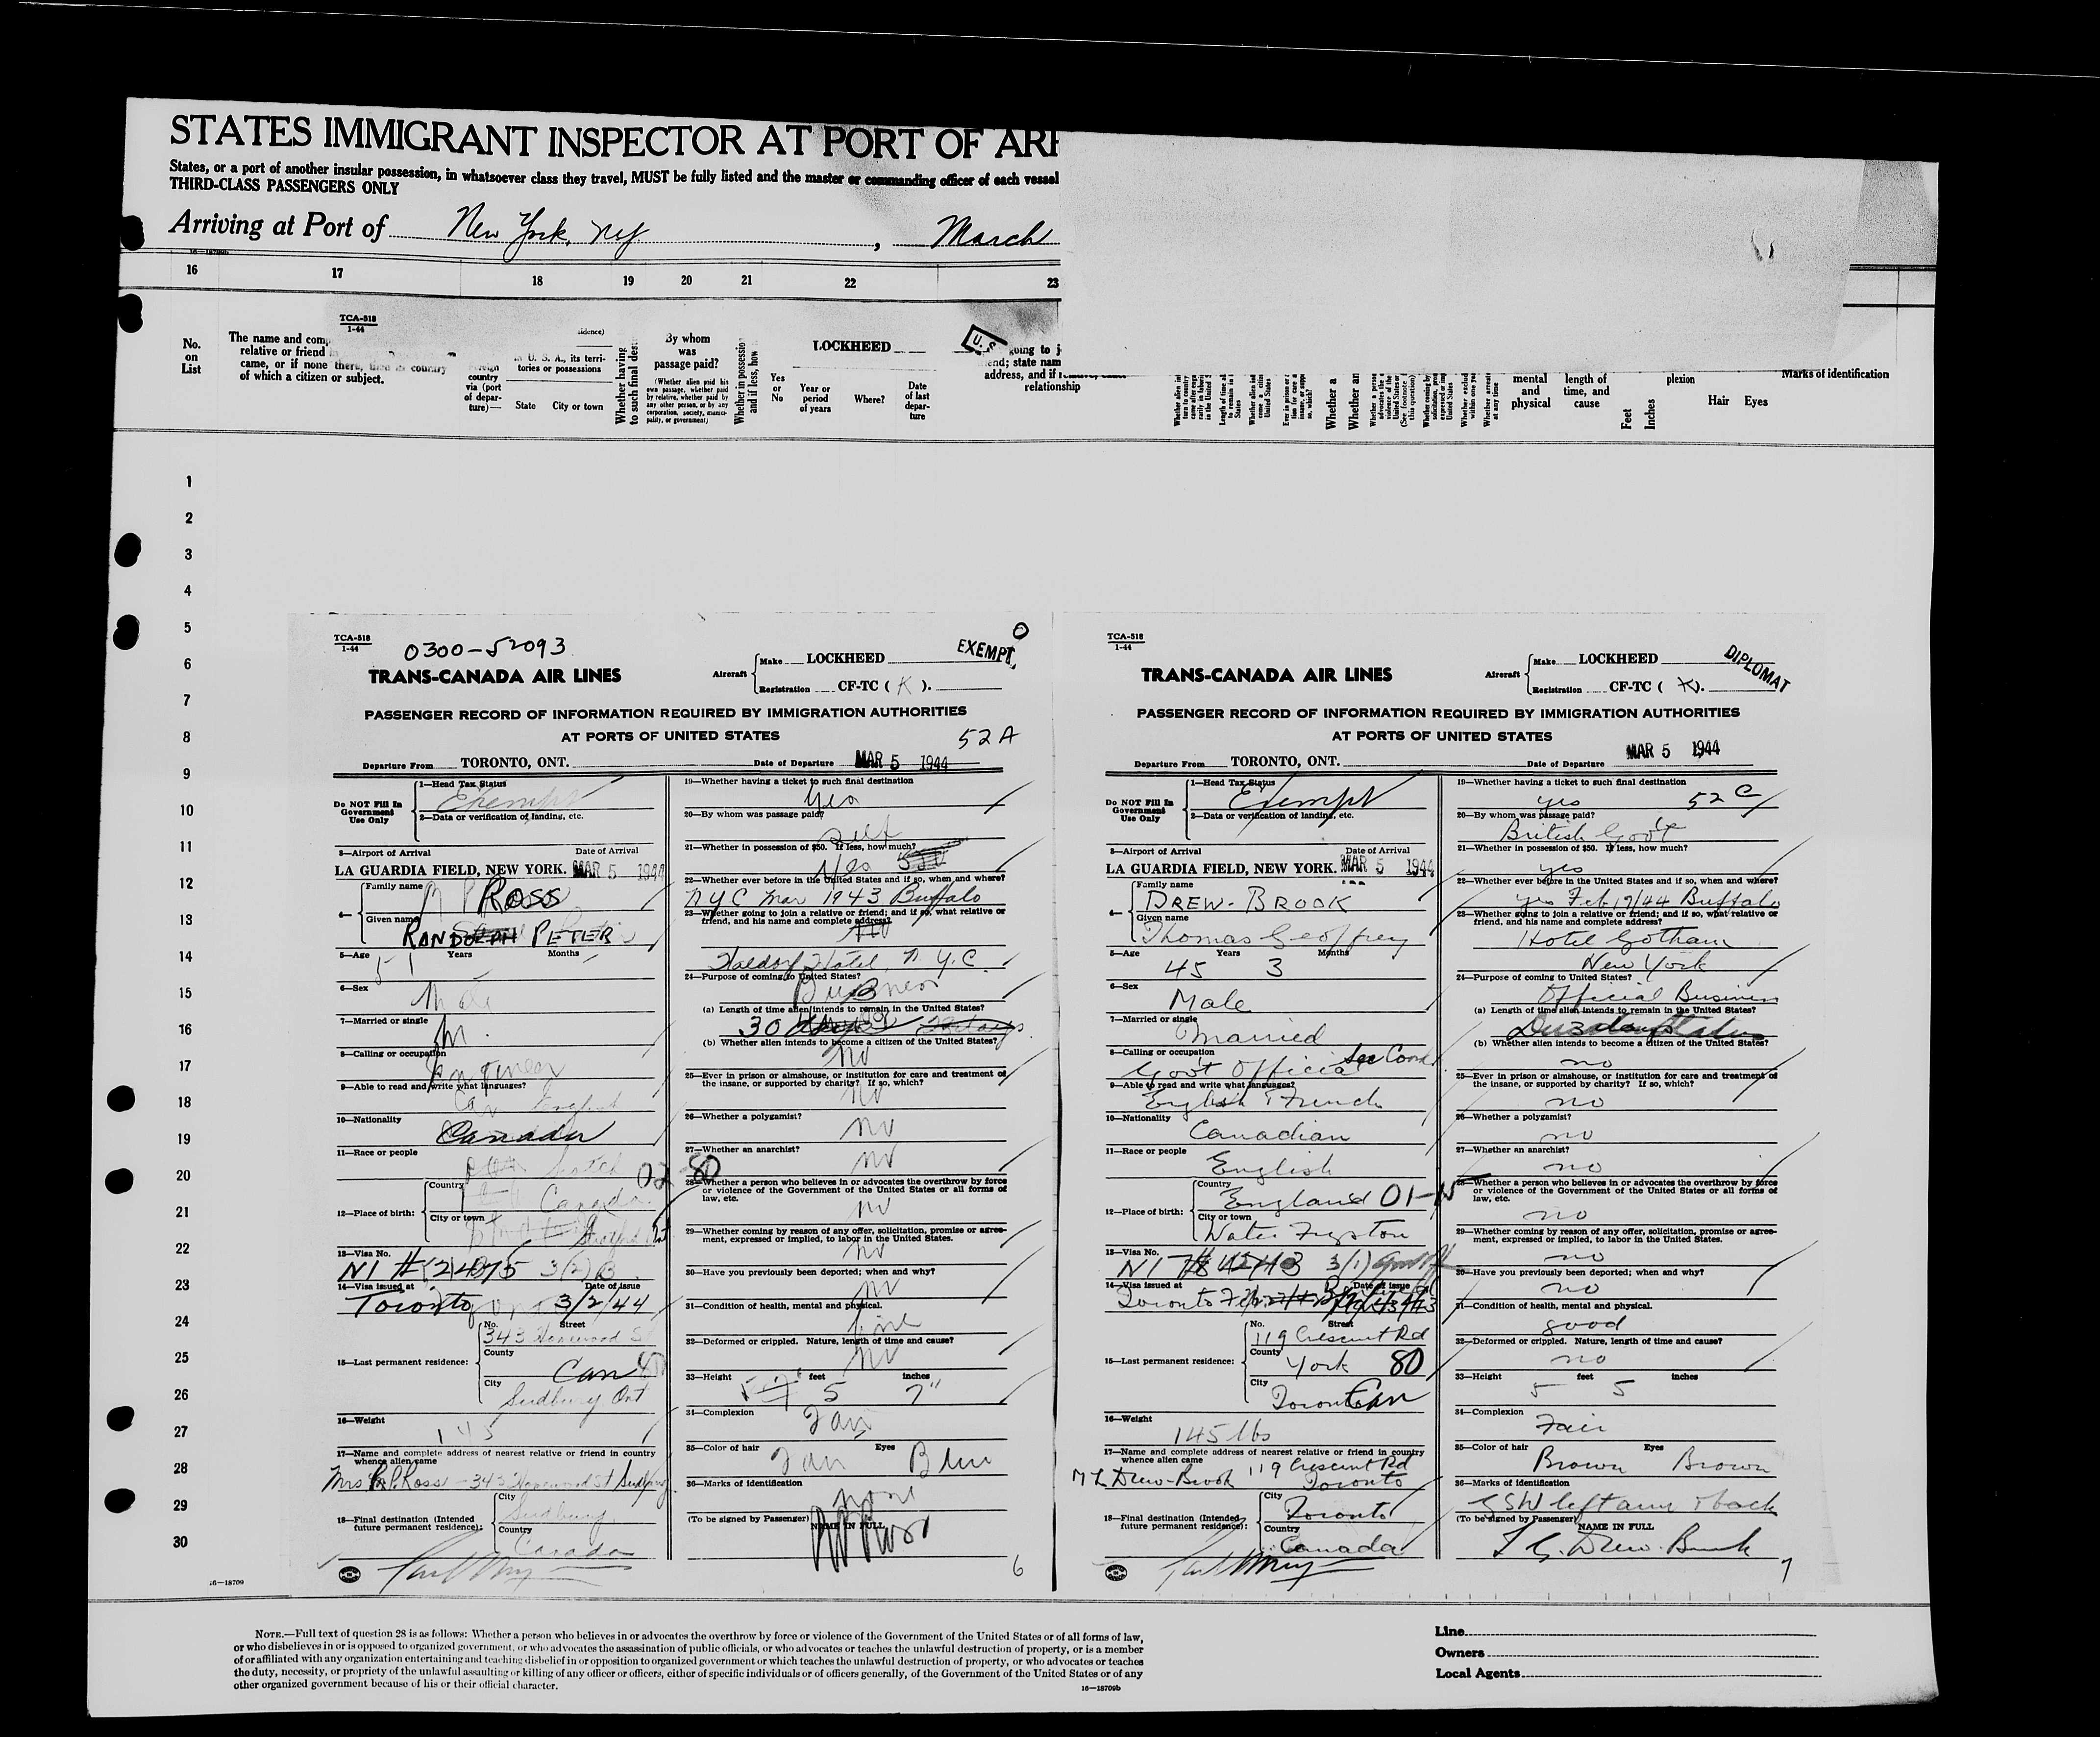 STATES IMMIGRANT INSPECTOR AT PORT OF ARR
States, or a port of another insular possession, in whatsoever class they travel, MUST be fully listed and the master or commanding officer of each vessel
THIRD-CLASS PASSENGERS ONLY
Arriving at Port of New York, NY, March
16 17 18 19 20 21 22 23
TCA-518
1-44
No. on List
The name and com
relative or friend
came, or if none there, then in country
of which a citizen or subject.
idence)
Foreign country via (port of departure)—
in U. S. A., its territories or possessions
State City or town
Whether having
to such final des
By whom was passage paid?
(Whether alien paid his own passage, whether paid by relative, whether paid by any other person, or by any corporation, society, municipality, or government)
Whether in possessio
and if less, how
LOCKHEED
Yes or No
Year or period of years
Where?
Date of last departure
U.S.
going to j
end; state nam
address, and if
relationship
Whether a
Whether an
mental and physical
length of time, and cause
Feet
Inches
plexion
Hair Eyes
Marks of identification
1
2
3
4
5
6
7
8
9
10
11
12
13
14
15
16
17
18
19
20
21
22
23
24
25
26
27
28
29
30
TCA-518
1-44
0300-52093
O
EXEMPT
TRANS-CANADA AIR LINES
Aircraft
Make LOCKHEED
Registration CF-TC ( K ).
PASSENGER RECORD OF INFORMATION REQUIRED BY IMMIGRATION AUTHORITIES
AT PORTS OF UNITED STATES
52 A
Departure From TORONTO, ONT. Date of Departure MAR 5 1944
Do NOT Fill In
Government
Use Only
1—Head Tax Status
Exempt
2—Data or verification of landing, etc.
3—Airport of Arrival Date of Arrival
LA GUARDIA FIELD, NEW YORK. MAR 5 1944
4—
Family name ROSS
Given name RANDOLPH PETER
5—Age 51 Years Months
6—Sex
Male
7—Married or single
M.
8—Calling or occupation
Engineer
9—Able to read and write what languages?
10—Nationality
Canada
11—Race or people
Scotch
02 80
12—Place of birth:
Country
Canada
City or town
13—Visa No.
NI # 3(2)B
14—Visa issued at Date of issue
Toronto 3/2/44
15—Last permanent residence:
No. Street
343
County
Can
City
Sudbury Ont
16—Weight
17—Name and complete address of nearest relative or friend in country
whence alien came
Mrs R.P. Ross - 343 St Sudbury
18—Final destination (Intended
future permanent residence):
City
Sudbury
Country
Canada
19—Whether having a ticket to such final destination
Yes
20—By whom was passage paid?
Self
21—Whether in possession of $50. If less, how much?
Yes
22—Whether ever before in the United States and if so, when and where?
NYC Mar 1943 Buffalo
23—Whether going to join a relative or friend; and if so, what relative or
friend, and his name and complete address?
No
Waldorf Hotel, N.Y.C.
24—Purpose of coming to United States?
Business
(a) Length of time alien intends to remain in the United States?
30 days
(b) Whether alien intends to become a citizen of the United States?
no
25—Ever in prison or almshouse, or institution for care and treatment of
the insane, or supported by charity? If so, which?
no
26—Whether a polygamist?
no
27—Whether an anarchist?
no
28—Whether a person who believes in or advocates the overthrow by force
or violence of the Government of the United States or all forms of
law, etc.
no
29—Whether coming by reason of any offer, solicitation, promise or agree-
ment, expressed or implied, to labor in the United States.
no
30—Have you previously been deported; when and why?
no
31—Condition of health, mental and physical.
fine
32—Deformed or crippled. Nature, length of time and cause?
no
33—Height feet inches
5 7"
34—Complexion
Fair
35—Color of hair Eyes
Fair Blue
36—Marks of identification
none
(To be signed by Passenger) NAME IN FULL
6
TCA-518
1-44
DIPLOMAT
TRANS-CANADA AIR LINES
Aircraft
Make LOCKHEED
Registration CF-TC ( K ).
PASSENGER RECORD OF INFORMATION REQUIRED BY IMMIGRATION AUTHORITIES
AT PORTS OF UNITED STATES
Departure From TORONTO, ONT. Date of Departure MAR 5 1944
Do NOT Fill In
Government
Use Only
1—Head Tax Status
Exempt
2—Data or verification of landing, etc.
3—Airport of Arrival Date of Arrival
LA GUARDIA FIELD, NEW YORK. MAR 5 1944
4—
Family name
DREW-BROOK
Given name
Thomas Geoffrey
5—Age Years Months
45 3
6—Sex
Male
7—Married or single
Married
8—Calling or occupation
Gov't Official
9—Able to read and write what languages?
English French
10—Nationality
Canadian
11—Race or people
English
12—Place of birth:
Country
England 01-N
City or town
13—Visa No.
NI 3/1)
14—Visa issued at Date of issue
Toronto
15—Last permanent residence:
No. Street
119 Crescent Rd
County
York 80
City
Toronto Can
16—Weight
145 lbs
17—Name and complete address of nearest relative or friend in country
whence alien came
Drew-Brook 119 Crescent Rd
Toronto
18—Final destination (Intended
future permanent residence):
City
Toronto
Country
Canada
19—Whether having a ticket to such final destination
yes 52 C
20—By whom was passage paid?
British Gov't
21—Whether in possession of $50. If less, how much?
yes
22—Whether ever before in the United States and if so, when and where?
yes Feb 19/44 Buffalo
23—Whether going to join a relative or friend; and if so, what relative or
friend, and his name and complete address?
Hotel Gotham
New York
24—Purpose of coming to United States?
Official Business
(a) Length of time alien intends to remain in the United States?
3 days
(b) Whether alien intends to become a citizen of the United States?
no
25—Ever in prison or almshouse, or institution for care and treatment of
the insane, or supported by charity? If so, which?
no
26—Whether a polygamist?
no
27—Whether an anarchist?
no
28—Whether a person who believes in or advocates the overthrow by force
or violence of the Government of the United States or all forms of
law, etc.
no
29—Whether coming by reason of any offer, solicitation, promise or agree-
ment, expressed or implied, to labor in the United States.
no
30—Have you previously been deported; when and why?
no
31—Condition of health, mental and physical.
good
32—Deformed or crippled. Nature, length of time and cause?
no
33—Height feet inches
5 5
34—Complexion
Fair
35—Color of hair Eyes
Brown Brown
36—Marks of identification
GSW left arm & back
(To be signed by Passenger) NAME IN FULL
T. G. Drew-Brook
7
16—18709
NOTE.—Full text of question 28 is as follows: Whether a person who believes in or advocates the overthrow by force or violence of the Government of the United States or of all forms of law,
or who disbelieves in or is opposed to organized government, or who advocates the assassination of public officials, or who advocates or teaches the unlawful destruction of property, or is a member
of or affiliated with any organization entertaining and teaching disbelief in or opposition to organized government or which teaches the unlawful destruction of property, or who advocates or teaches
the duty, necessity, or propriety of the unlawful assaulting or killing of any officer or officers, either of specific individuals or of officers generally, of the Government of the United States or of any
other organized government because of his or their official character.
16—18709b
Line
Owners
Local Agents